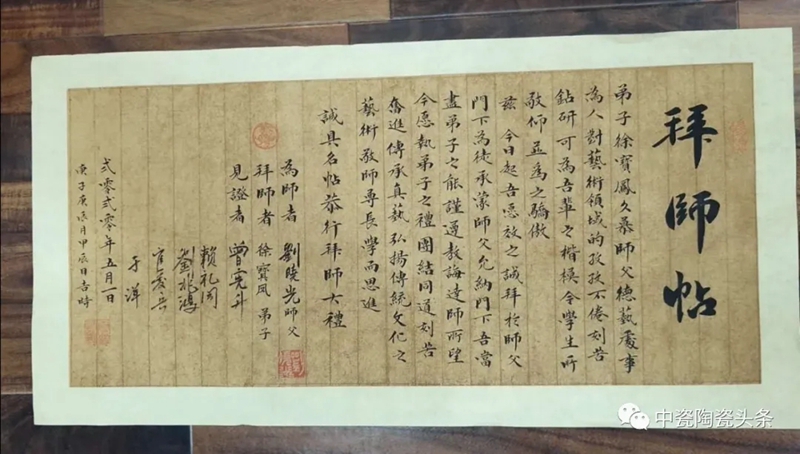 拜師帖
弟子徐寶鳳久慕師父德藝處事
為人對藝術領域的孜孜不倦刻苦
鉆研可為吾輩之楷模令學生所
敬仰並為之驕傲
茲 今日起吾憑赤之誠拜於師父
門下為徒承蒙師父允納門下吾當
盡弟子之能謹遵教誨達師所望
今愿執弟子之禮團結同道刻苦
奮進傳承真藝弘揚傳統文化之
藝術 敬師尊長學而思進
誠具名帖恭行拜師大禮
為師者 劉曉光師父
拜師者 徐寶鳳 弟子
見證者 曾憲升
賴礼同
劉兆鴻
于洋
弍零弍零年五月一日
庚子庚辰月甲辰日吉時
中瓷陶瓷头条